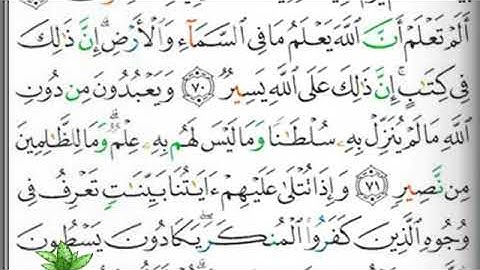 أَلَمْ تَعْلَمْ أَنَّ اللَّهَ يَعْلَمُ مَا فِي السَّمَآءِ وَالْأَرْضِ ۗ إِنَّ ذَٰلِكَ
فِي كِتَٰبٍ ۚ إِنَّ ذَٰلِكَ عَلَى اللَّهِ يَسِيرٌ ۝٧٠ وَيَعْبُدُونَ مِن دُونِ
اللَّهِ مَا لَمْ يُنَزِّلْ بِهِۦ سُلْطَٰنًا وَمَا لَيْسَ لَهُم بِهِۦ عِلْمٌ ۗ وَمَا لِلظَّٰلِمِينَ
مِن نَّصِيرٍ ۝٧١ وَإِذَا تُتْلَىٰ عَلَيْهِمْ ءَايَٰتُنَا بَيِّنَٰتٍ تَعْرِفُ فِي
وُجُوهِ الَّذِينَ كَفَرُوا۟ الْمُنكَرَ ۖ يَكَادُونَ يَسْطُونَ